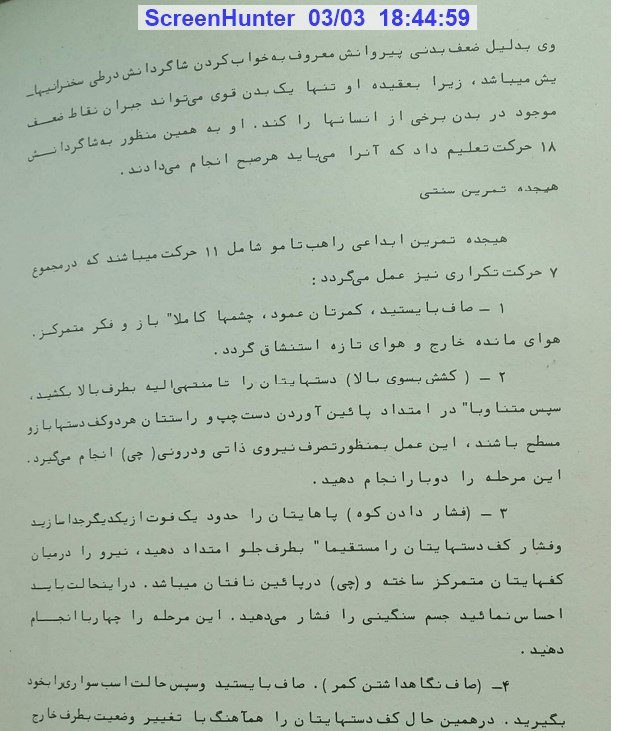 ScreenHunter 03/03 18:44:59
وی بدلیل ضعف بدنی پیروانش معروف به خواب کردن شاگردانش درطی سخنرانیهاـ
یش میباشد، زیرا بعقیده او تنها یک بدن قوی می‌تواند جبران نقاط ضعـــف
موجود در بدن برخی از انسانها را کند. او به همین منظور به شاگردانــش
۱۸ حرکت تعلیم داد که آنرا می‌باید هرصبح انجام می‌دادند.
هیجده تمرین سنتی
هیجده تمرین ابداعی راهب تامو شامل ۱۱ حرکت میباشند که درمجموع
۷ حرکت تکراری نیز عمل می‌گردد:
۱ ــ صاف بایستید، کمرتان عمود، چشمها کاملا" باز و فکر متمرکز.
هوای مانده خارج و هوای تازه استنشاق گردد.
۲ ــ (کشش بسوی بالا) دستهایتان را تا منتهی‌الیه بطرف بالا بکشید،
سپس متناوبا" در امتداد پائین آوردن دست چپ و راستتان هردوکف دستها بازو
مسطح باشند، این عمل بمنظورتصرف نیروی ذاتی ودرونی( چی) انجام می‌گیرد.
این مرحله را دوبارانجام دهید.
۳ ــ (فشار دادن کوه) پاهایتان را حدود یک فوت ازیکدیگرجداسازید
وفشار کف دستهایتان رامستقیما" بطرف جلو امتداد دهید، نیرو را درمیان
کفهایتان متمرکز ساخته و (چی) درپائین نافتان میباشد. دراینحالت بایـد
احساس نمائید جسم سنگینی را فشار می‌دهید. این مرحله را چهاربارانجـــام
دهید.
۴ــ (صاف نگاهداشتن کمر). صاف بایستید وسپس حالت اسب سواری رابخود
بگیرید. درهمین حال کف دستهایتان را همآهنگ با تغییر وضعیت بطرف خارج